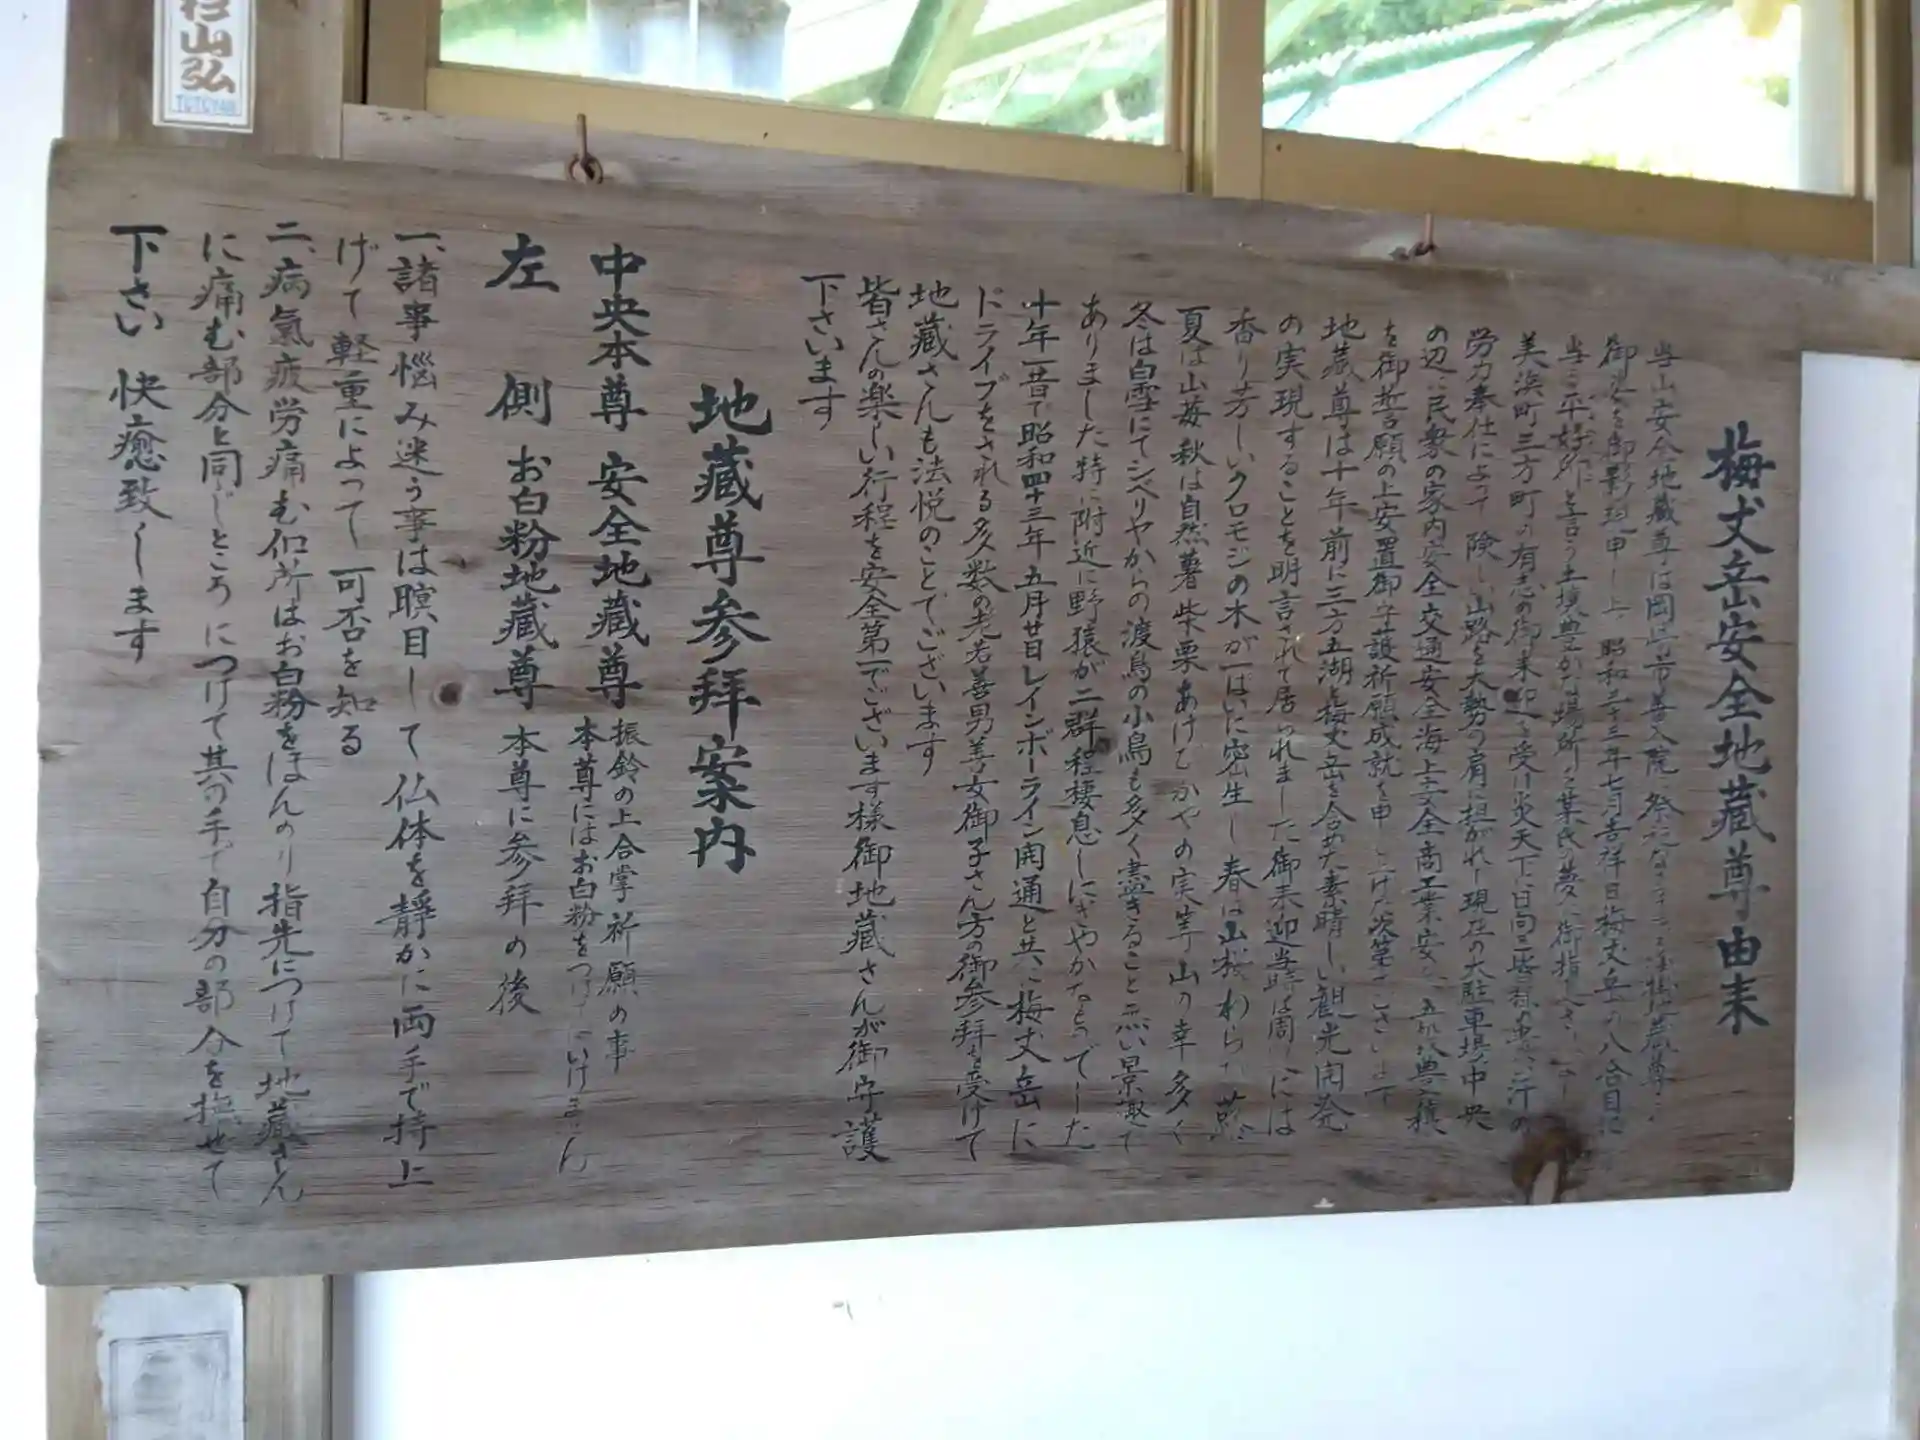 梅丈岳安全地蔵尊由来
当山安全地蔵尊は岡山市善入院に
御姿を御影 申し上 昭和三十三年七月吉祥日梅丈岳の八合目に
当る平好所と言う土壌豊かな場所を葉氏の夢に御指
美浜町三方町の有志の御来迎を受け炎天下に日向 汗の
労力奉仕によって険しい山路を大勢の肩に担がれ現在の大駐車場の中央
の辺に民衆の家内安全交通安全海上安全商工業安 五穀豊穣
を御誓願の上安置御守護祈願成就を申し上げた次第でございます
地蔵尊は十年前に三方五湖と梅丈岳を含めた素晴しい観光開発
の実現することを明言されて居られました御来迎当時は周りには
香り芳しいクロモジの木が一ぱいに密生し春は山桜わらび
夏は山苺秋は自然薯柴栗あけびかやの実等山の幸多く
冬は白雪にてシベリヤからの渡鳥の小鳥も多く盡きること無い景趣で
ありました特に附近に野猿が二群程棲息しにぎやかなものでした
十年一昔で昭和四十三年五月廿日レインボーライン開通と共に梅丈岳に
ドライブをされる多数の老若善男善女御子さん方の御参拝を受けて
地蔵さんも法悦のことでございます
皆さんの楽しい行程を安全第一でございます様御地蔵さんが御守護
下さいます
地蔵尊参拝案内
中央本尊 安全地蔵尊 振鈴の上合掌祈願の事
本尊にはお白粉をつけていけません
左側 お白粉地蔵尊 本尊に参拝の後
一、諸事悩み迷う事は瞑目して仏体を静かに両手で持上
げて軽重によって可否を知る
二、病氣疲労痛む個所はお白粉をほんのり指先につけて地蔵さん
に痛む部分と同じところにつけて其の手で自分の部分を撫せて
下さい 快癒致します
山弘